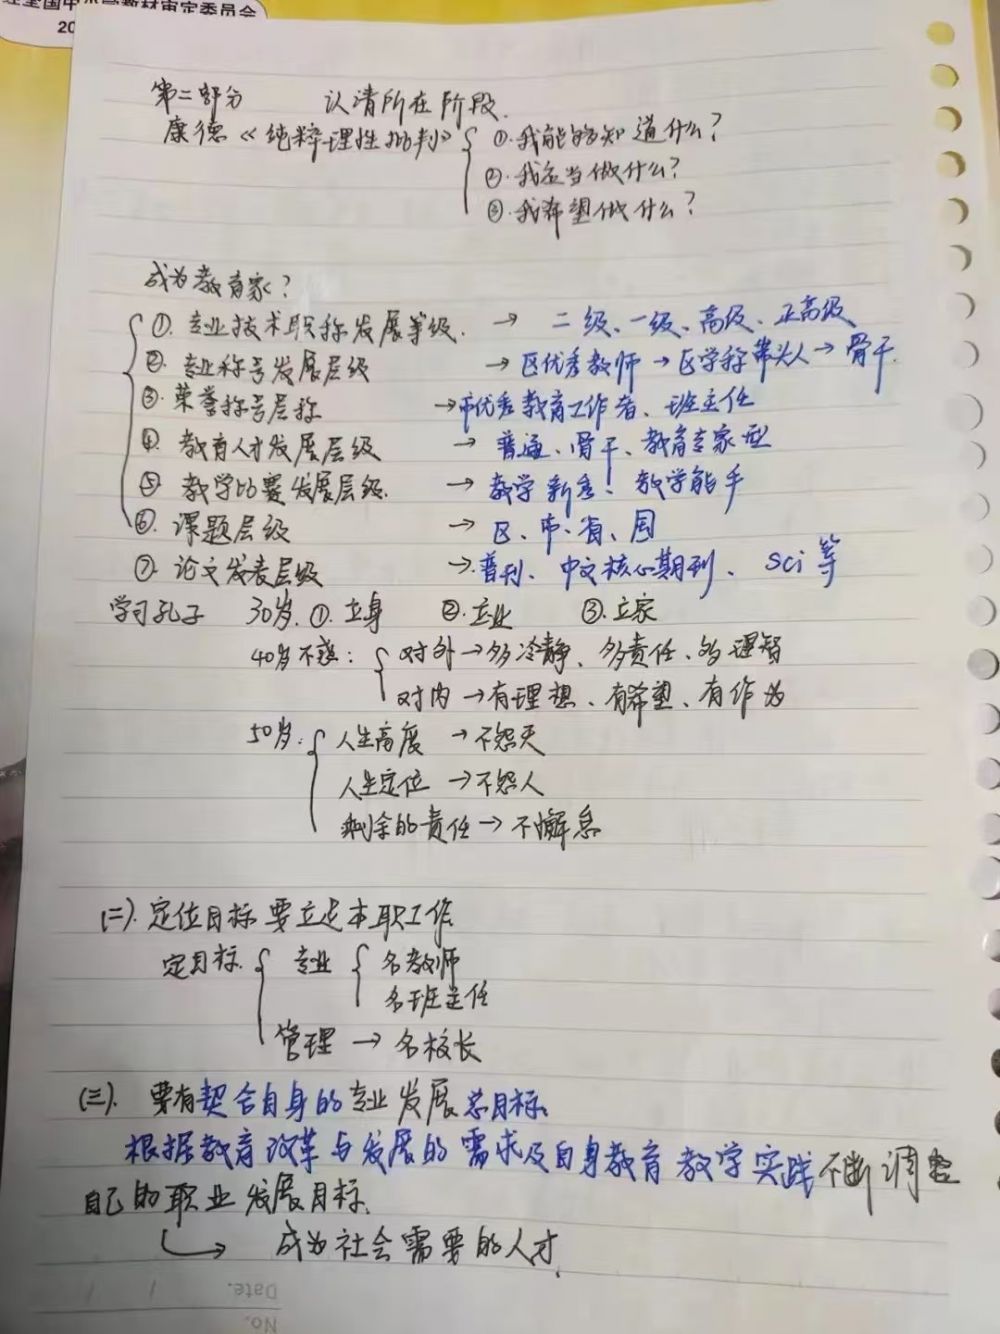 全国中小学教材审定委员会
20
第二部分 认清所在阶段.
康德《纯粹理性批判》 ①.我能够知道什么?
②.我应当做什么?
③.我希望做什么?
成为教育家?
①.专业技术职称发展等级. → 二级、一级、高级、正高级
②.专业称号发展层级 → 区优秀教师 → 区学称带头人 → 骨干.
③.荣誉称号层称 → 市优秀教育工作者、班主任
④.教育人才发展层级 → 普通、骨干、教育专家型
⑤ 教学比赛发展层级. → 教学新秀、教学能手
⑥.课题层级 → 区、市、省、国
⑦.论文发表层级 → 普刊、中文核心期刊、sci等
学习孔子 30岁.①.立身 ②.立业 ③.立家
40岁不惑: 对外→多冷静、多责任、多理智
对内→有理想、有希望、有作为
50岁: 人生高度 → 不怨天
人生定位 → 不怨人
剩余的责任 → 不懈怠
(二).定位目标要立足本职工作
定目标. 专业 名教师
名班主任
管理 → 名校长
(三). 要有契合自身的专业发展总目标.
根据教育改革与发展的需求及自身教育教学实践不断调整
自己的职业发展目标.
→ 成为社会需要的人才.
Date.
No.